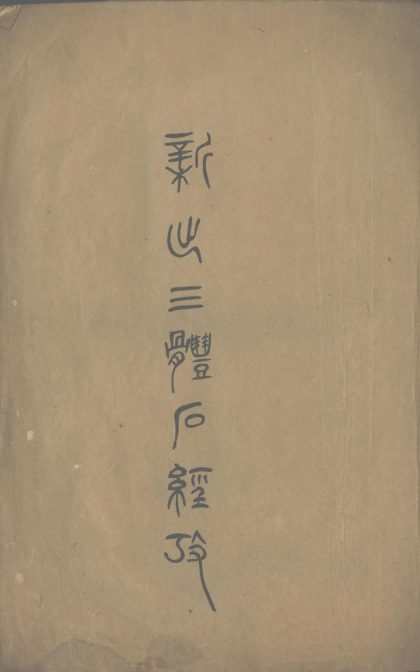 新出三體石經攷